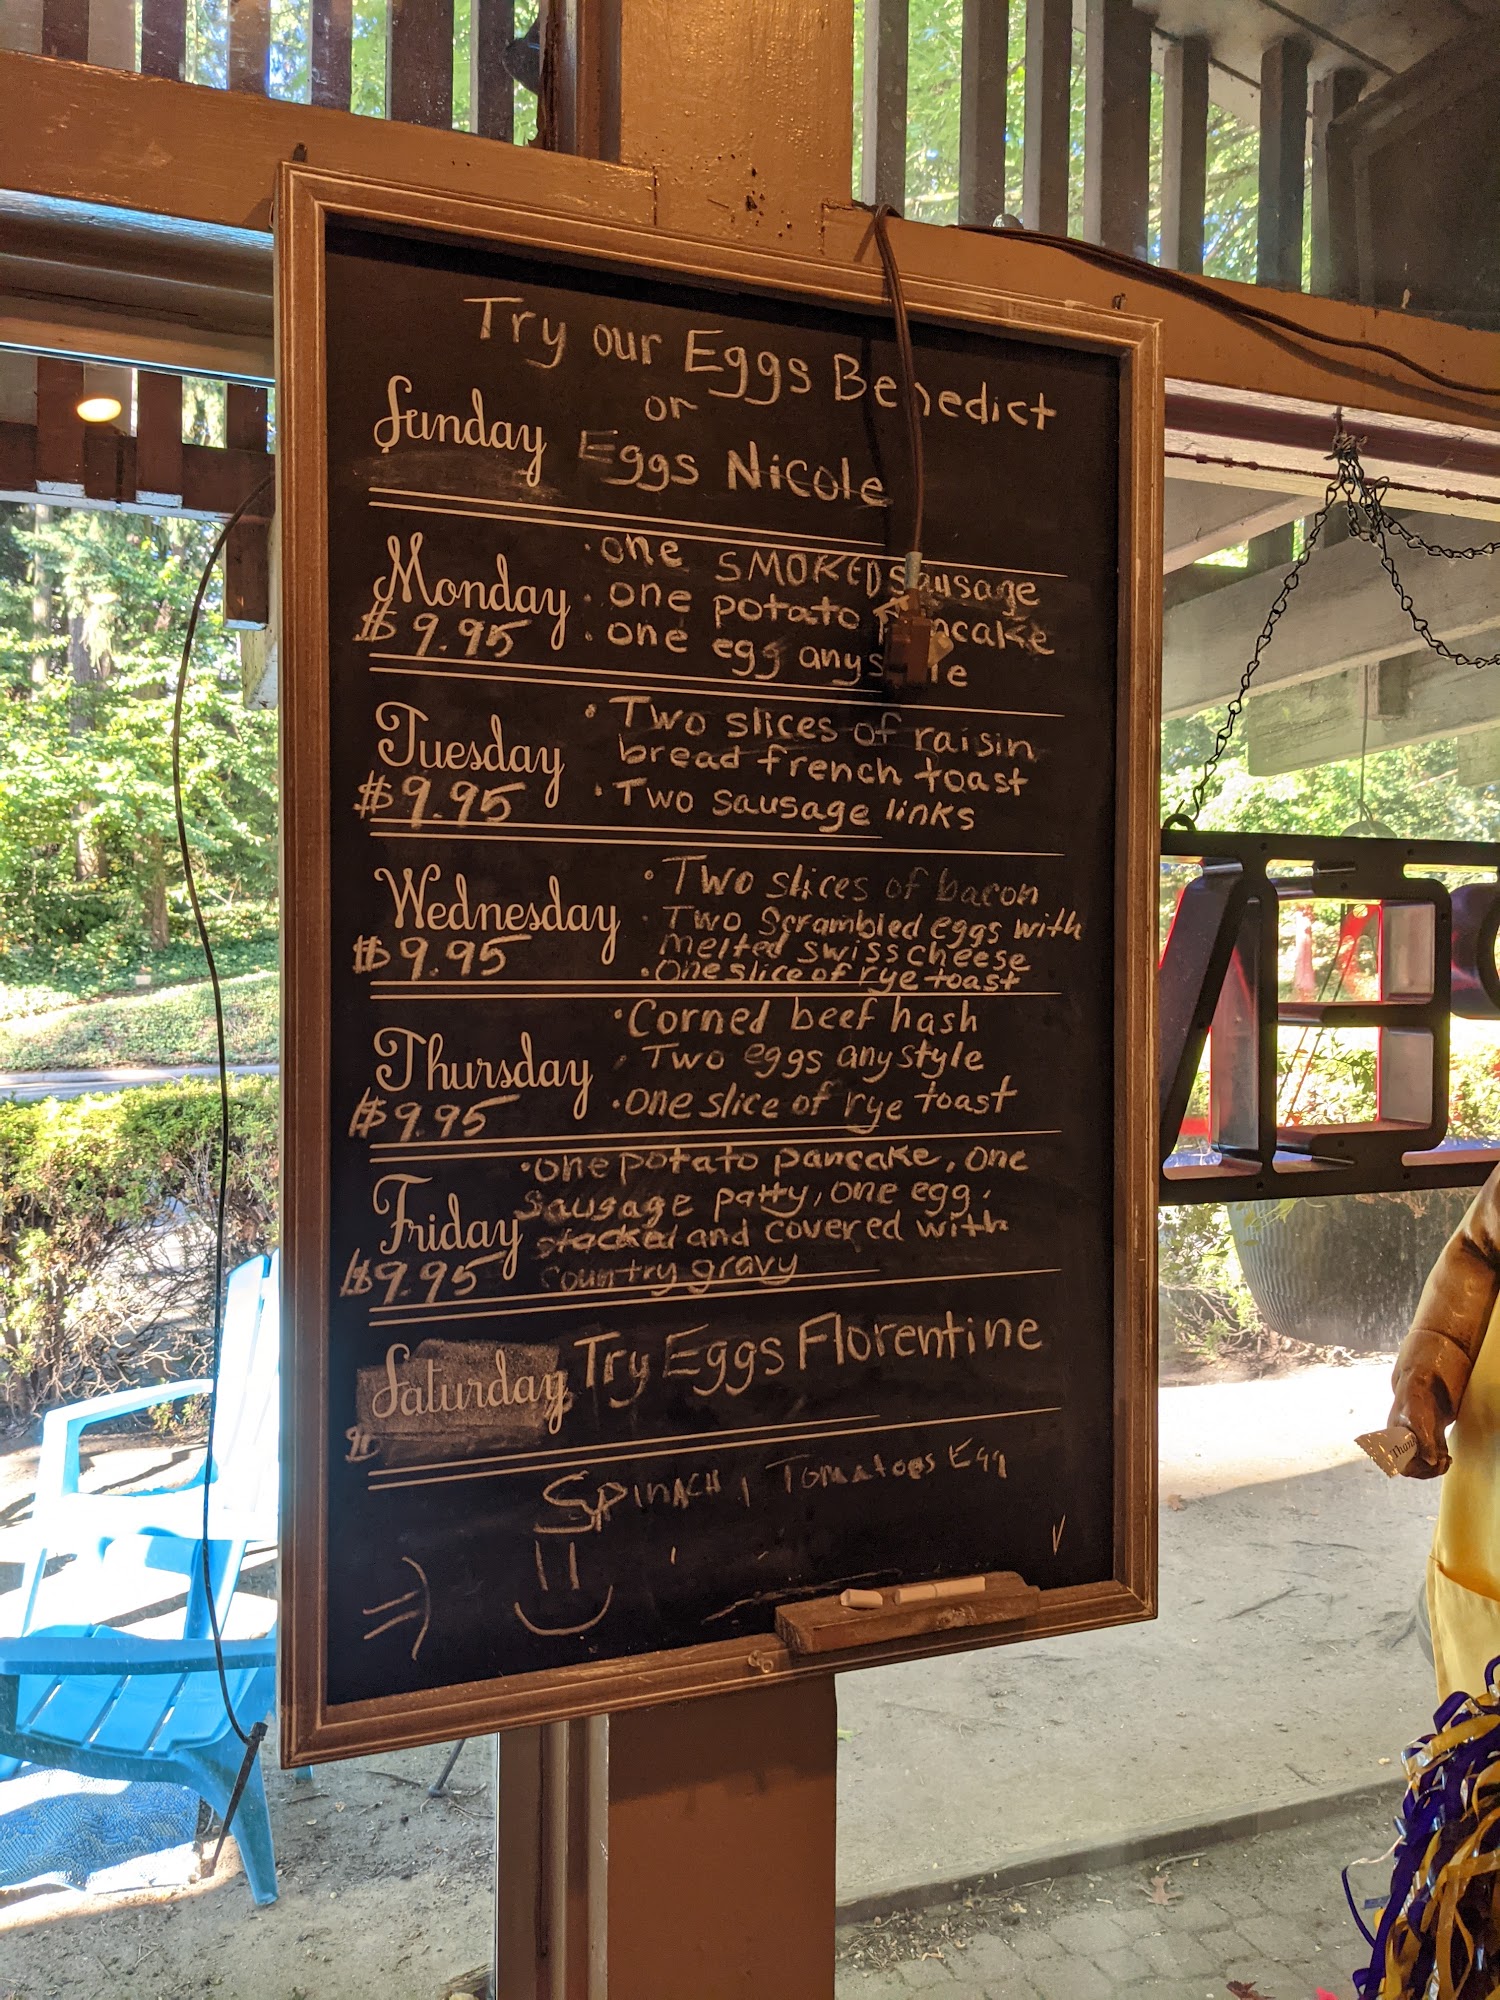 Try our Eggs Benedict
or
Sunday Eggs Nicole
Monday
$9.95
· one SMOKED sausage
· one potato pancake
· one egg anystyle
Tuesday
$9.95
· Two slices of raisin
bread french toast
· Two sausage links
Wednesday
$9.95
· Two slices of bacon
· Two Scrambled eggs with
melted swiss cheese
· One slice of rye toast
Thursday
$9.95
· Corned beef hash
· Two eggs anystyle
· one slice of rye toast
Friday
$9.95
· one potato pancake, one
sausage patty, one egg,
stacked and covered with
country gravy
Saturday Try Eggs Florentine
SPINACH, TOMATOES EGG
=)